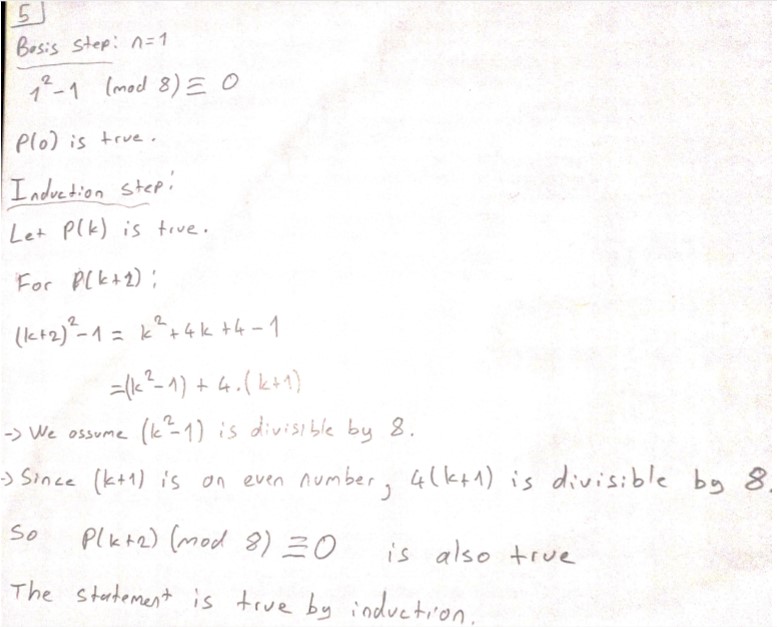 5
Basis step: n=1
1²-1 (mod 8) ≡ 0
P(0) is true.
Induction step:
Let P(k) is true.
For P(k+2):
(k+2)²-1 = k²+4k+4-1
=(k²-1) + 4.(k+1)
-> We assume (k²-1) is divisible by 8.
-> Since (k+1) is an even number, 4(k+1) is divisible by 8.
So P(k+2) (mod 8) ≡ 0 is also true
The statement is true by induction.